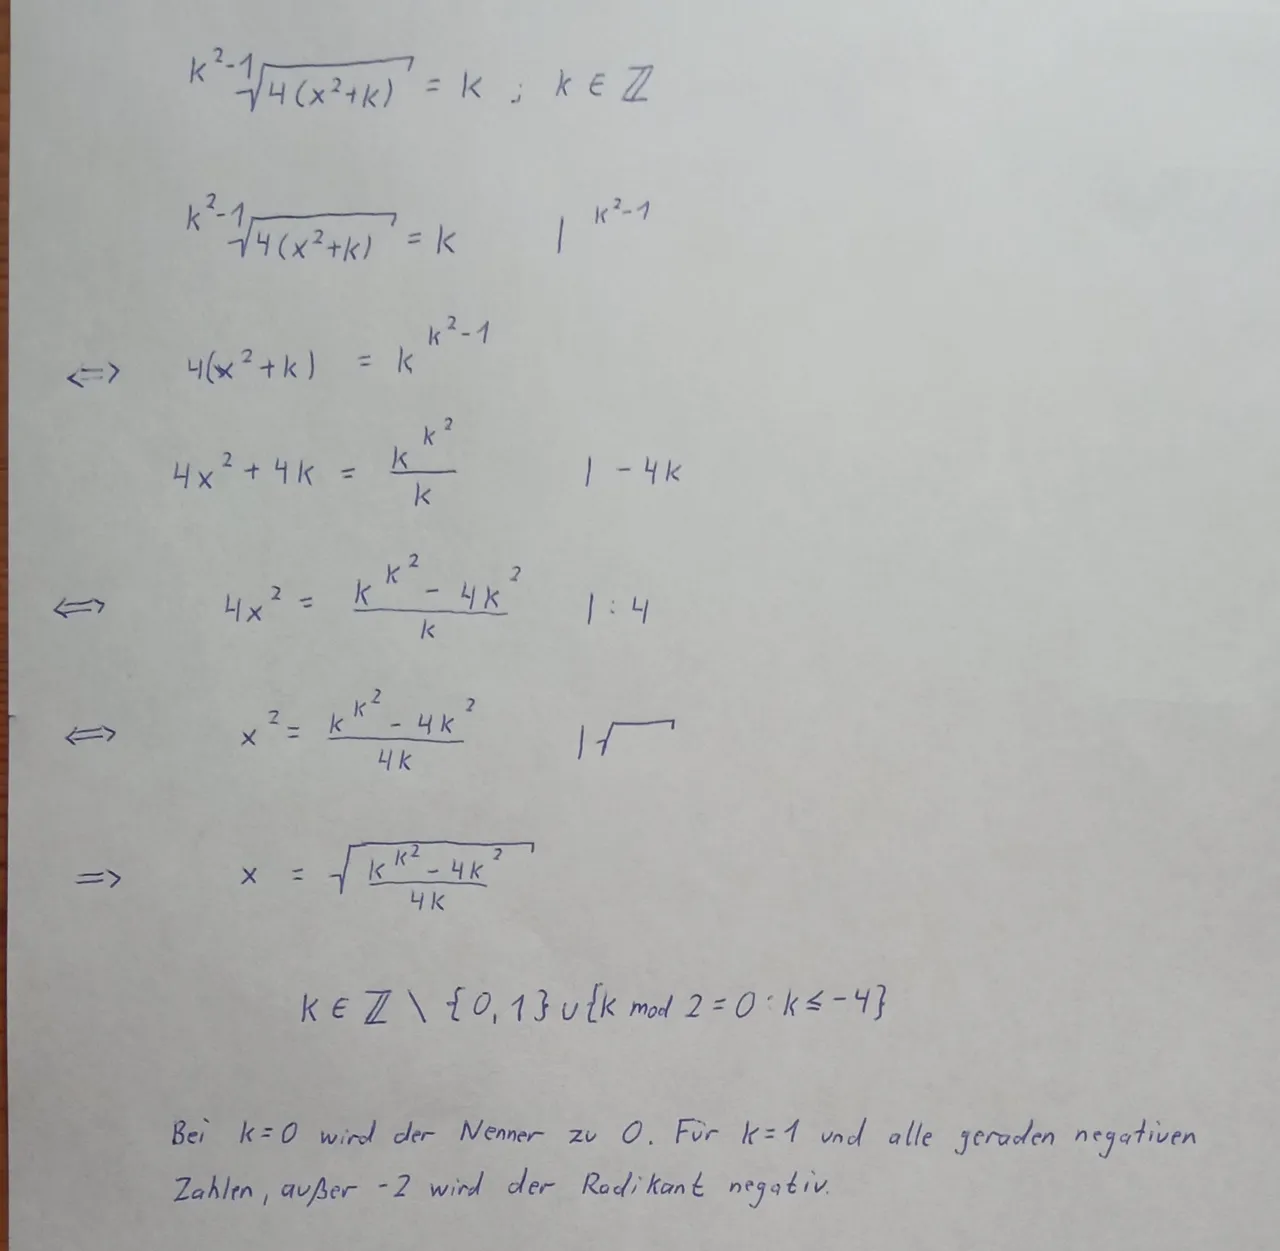 ᵏ²⁻¹√(4(x²+k)) = k ; k ∈ ℤ
ᵏ²⁻¹√(4(x²+k)) = k | ^(k²-1)
<=> 4(x²+k) = k^(k²-1)
4x² + 4k = k^(k²)/k | - 4k
<=> 4x² = (k^(k²) - 4k²)/k | : 4
<=> x² = (k^(k²) - 4k²)/(4k) | √
=> x = √((k^(k²) - 4k²)/(4k))
k ∈ ℤ \ {0,1} ∪ {k mod 2 = 0 : k ≤ -4}
Bei k=0 wird der Nenner zu 0. Für k=1 und alle geraden negativen
Zahlen, außer -2 wird der Radikant negativ.